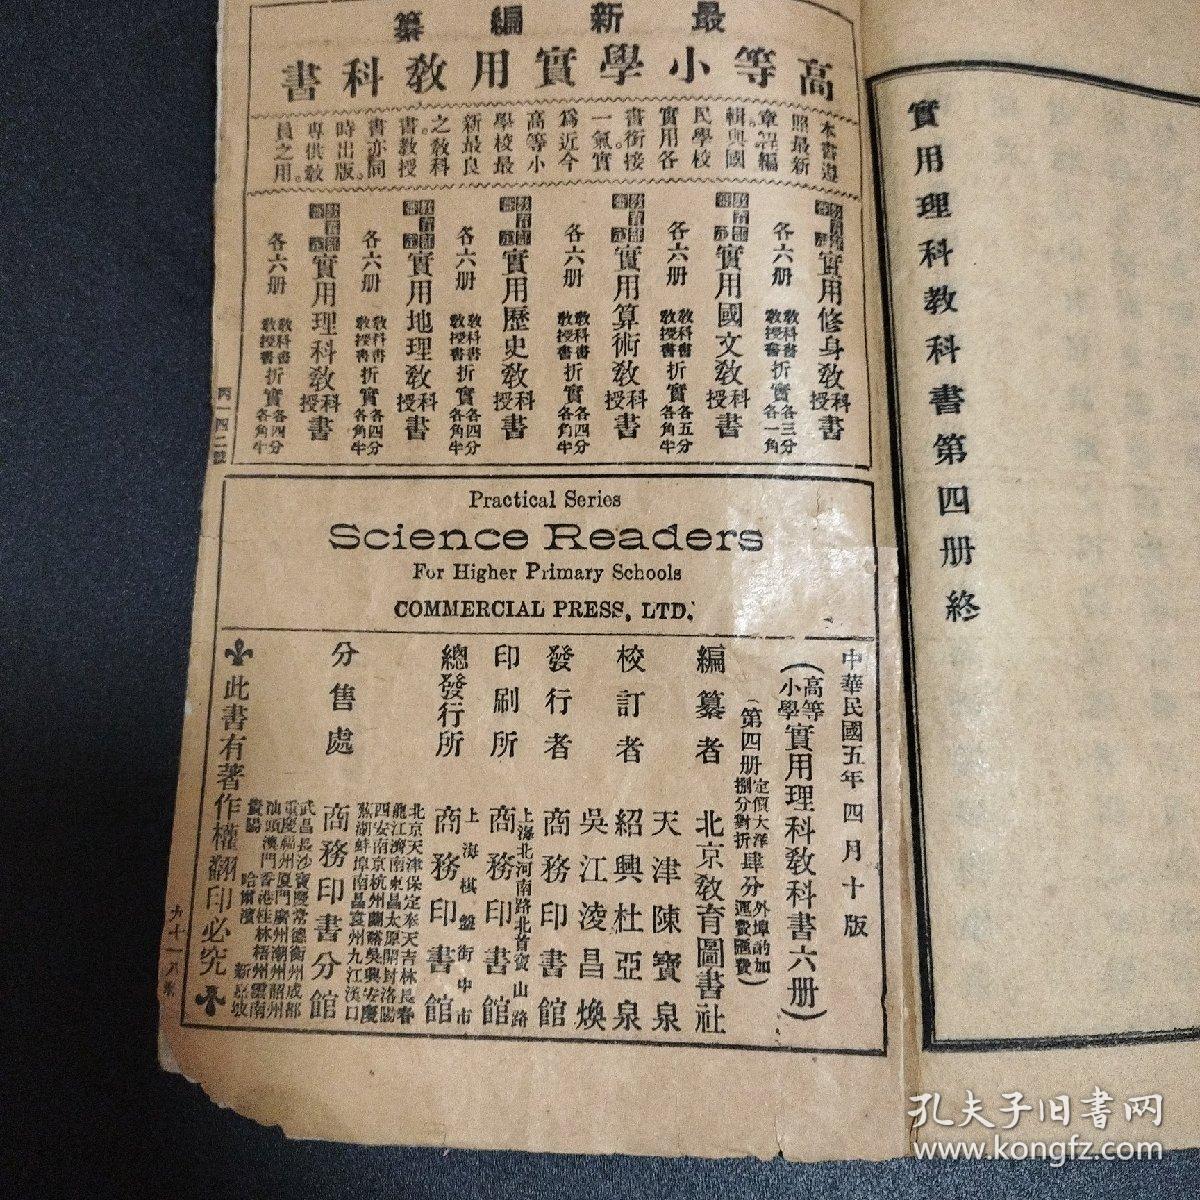 實用理科教科書第四册終
最新編纂
高等小學實用教科書
本書遵
照最新
章程編
輯與國
民學校
實用各
書銜接
一氣實
為近今
高等小
學校最
新最良
之教科
書教授
書亦同
時出版。
專供教
員之用。
教育部審定 實用修身教科授書
各六册 教科書教授書折實各三分各一角
教育部審定 實用國文教科授書
各六册 教科書教授書折實各五分各角半
教育部審定 實用算術教科授書
各六册 教科書教授書折實各四分各角半
教育部審定 實用歷史教科授書
各六册 教科書教授書折實各四分各角半
教育部審定 實用地理教科授書
各六册 教科書教授書折實各四分各角半
教育部審定 實用理科教科授書
各六册 教科書教授書折實各四分各角半
丙一四二號
Practical Series
Science Readers
For Higher Primary Schools
COMMERCIAL PRESS, LTD.
中華民國五年四月十版
(高等小學實用理科教科書六册)
(第四册定價大洋肆分捌分對折外埠酌加運費匯費)
編纂者 北京教育圖書社
校訂者 天津陳寶泉
紹興杜亞泉
吳江淩昌煥
發行者 商務印書館
印刷所 上海北河南路北首寶山路
商務印書館
總發行所 上海棋盤街中市
商務印書館
分售處 北京天津保定奉天吉林長春
龍江濟南東昌太原開封洛陽
西安南京杭州蘭谿吳興安慶
蕪湖蚌埠南昌袁州九江漢口
商務印書分館
武昌長沙寶慶常德衡州成都
重慶福州廈門廣州潮州韶州
汕頭澳門香港桂林梧州雲南
貴陽 哈爾濱 新嘉坡
此書有著作權翻印必究
孔夫子旧书网
www.kongfz.com